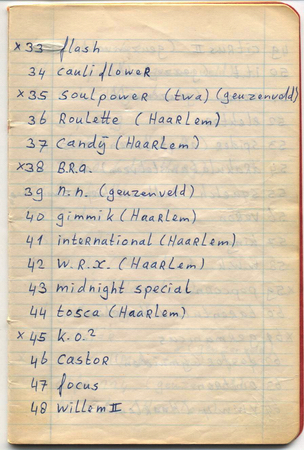 x 33 flash
34 cauliflower
x 35 soulpower (twa) (geuzenveld)
36 Roulette (Haarlem)
37 candy (Haarlem)
x 38 B.R.a.
39 n.n. (geuzenveld)
40 gimmik (Haarlem)
41 international (Haarlem)
42 W.R.X. (Haarlem)
43 midnight special
44 tosca (Haarlem)
x 45 K.O.2
46 castor
47 focus
48 Willem II